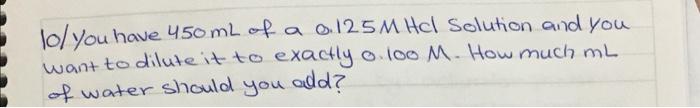 10/ you have 450 mL of a 0.125 M Hcl Solution and you
want to dilute it to exactly 0.100 M. How much mL
of water should you add?